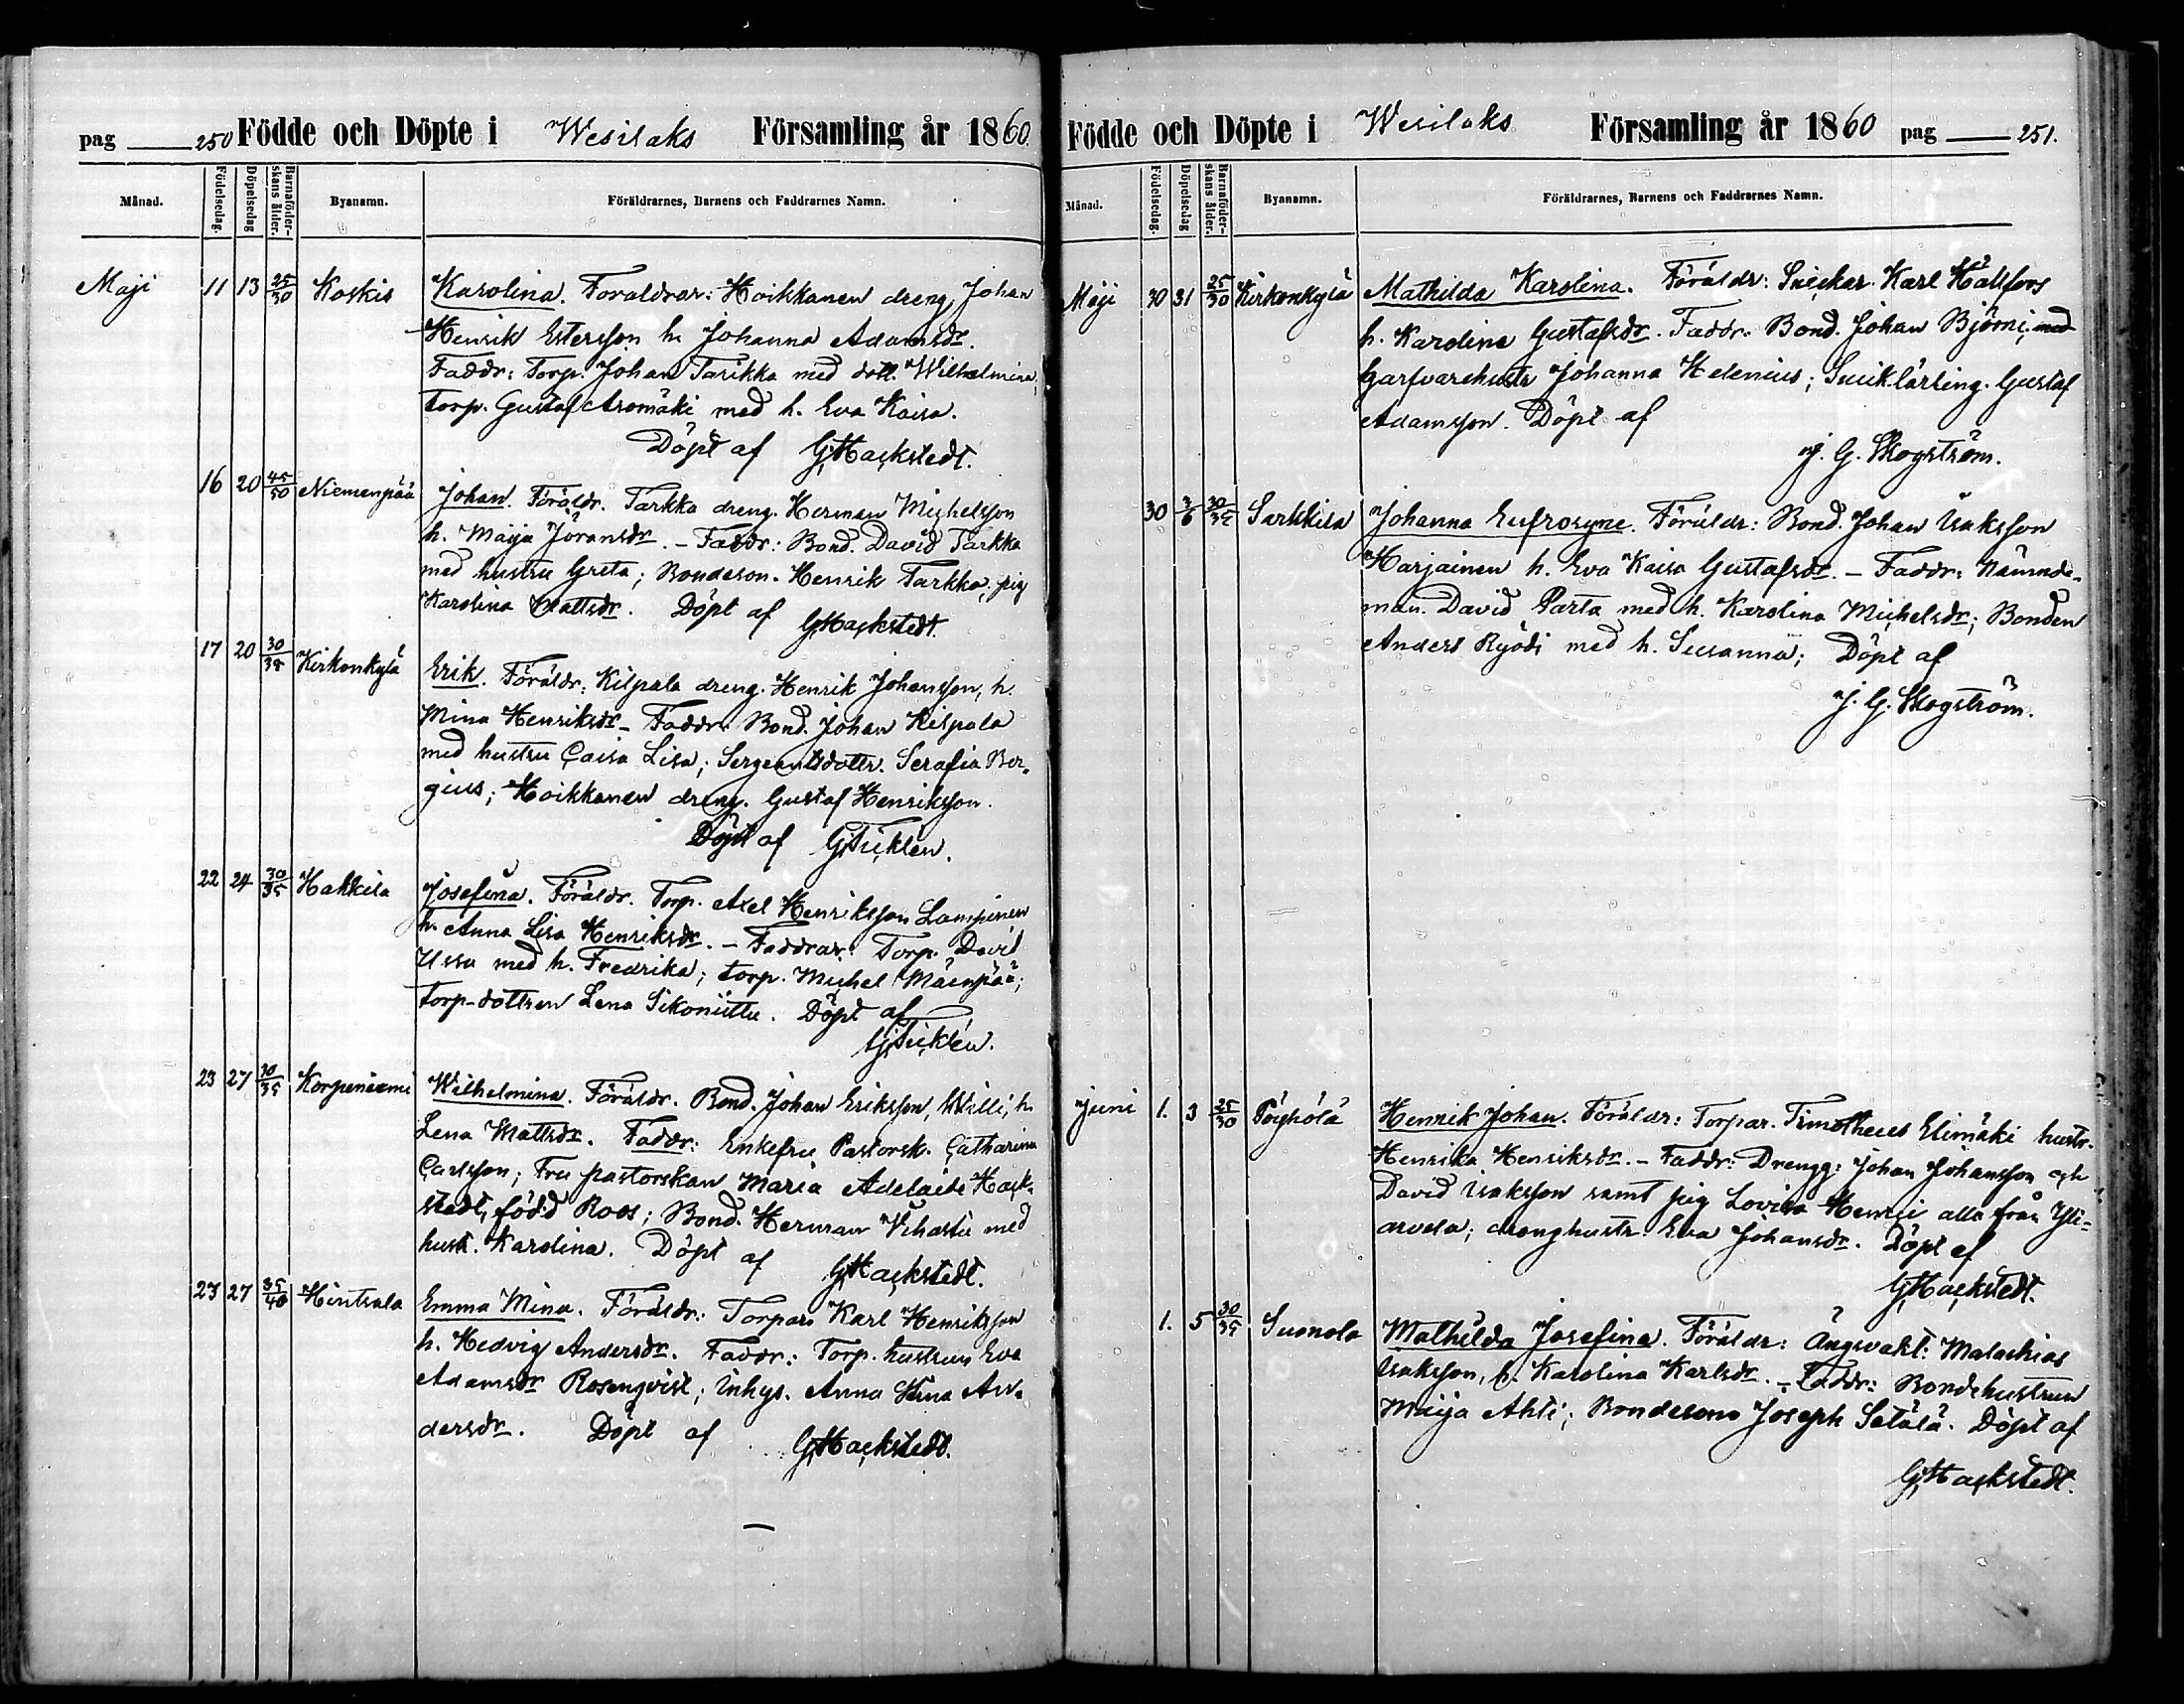 pag 250 Födde och Döpte i Wesilaks Församling år 1860.
Månad. Födelsedag. Döpelsedag Barnaföderskans ålder. Byanamn. Föräldrarnes, Barnens och Faddrarnes Namn.
Maji 11 13 25/30 Koskis Karolina. Föräldrar: Hoikkanen dreng Johan
Henrik Estersson h. Johanna Adamsdr.
Faddr: Torp. Johan Tarikka med dott. Wilhelmina;
torp. Gustaf Aromäki med h. Eva Kaisa.
Döpt af G Hackstedt.
16 20 45/50 Niemenpää Johan. Föräldr. Tarkka dreng. Herman Michelsson
h. Maija Jöransdr. – Faddr: Bond. David Tarkka
med hustru Greta; Bondeson. Henrik Tarkka, pig
Karolina Mattsdr. Döpt af G Hackstedt.
17 20 30/35 Kirkonkylä Erik. Föräldr: Kilpala dreng. Henrik Johansson, h.
Mina Henriksdr – Faddr: Bond. Johan Kilpala
med hustru Caisa Lisa; Sergeantsdottr. Serafia Ber-
gius; Hoikkanen dreng. Gustaf Henriksson.
Döpt af G Ticklén.
22 24 30/35 Hakkila Josefina. Föräldr. Torp. Axel Henriksson Lampinen
h. Anna Lisa Henriksdr. – Faddrar: Torp. David
Ussa med h. Fredrika; torp. Michel Mäenpää;
torp-dottren Lena Sikoniittu. Döpt af
G Ticklén.
23 27 30/35 Korpeniemi Wilhelmina. Föräldr. Bond. Johan Eriksson, Willi, h.
Lena Mattsdr. Faddr: Enkefru Pastorsk. Catharina
Carlsson; Fru pastorskan Maria Adelaide Hack-
stedt, född Roos; Bond. Herman Vihastii med
hustr. Karolina. Döpt af G Hackstedt.
23 27 35/40 Hintsala Emma Mina. Föräldr: Torpar. Karl Henriksson
h. Hedvig Andersdr. Faddr: Torp. hustrun Eva
Adamsdr Rosenqvist; inhys. Anna Stina An-
dersdr. Döpt af G Hackstedt.
Födde och Döpte i Wesilaks Församling år 1860 pag 251.
Månad. Födelsedag. Döpelsedag Barnaföderskans ålder. Byanamn. Föräldrarnes, Barnens och Faddrarnes Namn.
Maji 30 31 25/30 Kirkonkylä Mathilda Karolina. Föräldr: Snickar. Karl Hällfors
h. Karolina Gustafsdr. Faddr. Bond. Johan Björni; med
Garfvarehustr Johanna Helenius; Snicklärling. Gustaf
Adamsson. Döpt af
J. G. Skogström.
30 3/6 30/35 Sarkkila Johanna Eufrosyne. Föräldr: Bond. Johan Isaksson
Harjainen h. Eva Kaisa Gustafsdr. – Faddr: Nämnde-
man. David Parta med h. Karolina Michelsdr; Bonden
Anders Ryödi med h. Susanna; Döpt af
J. G. Skogström.
Juni 1. 3 25/30 Pöyhölä Henrik Johan. Föräldr: Torpar. Timotheus Elimäki hustr.
Henrika Henriksdr. – Faddr: Drengg: Johan Johansson och
David Isaksson samt pig Lovisa Henrii alla från Yli-
arvela; drenghustr. Eva Johansdr. Döpt af
G Hackstedt.
1. 5 30/35 Suonola Mathilda Josefina. Föräldr: Ängsvakt: Malachias
Isaksson, h. Karolina Karlsdr. – Faddr: Bondehustrun
Maija Ahti; Bondesono Joseph Setälä. Döpt af
G Hackstedt.